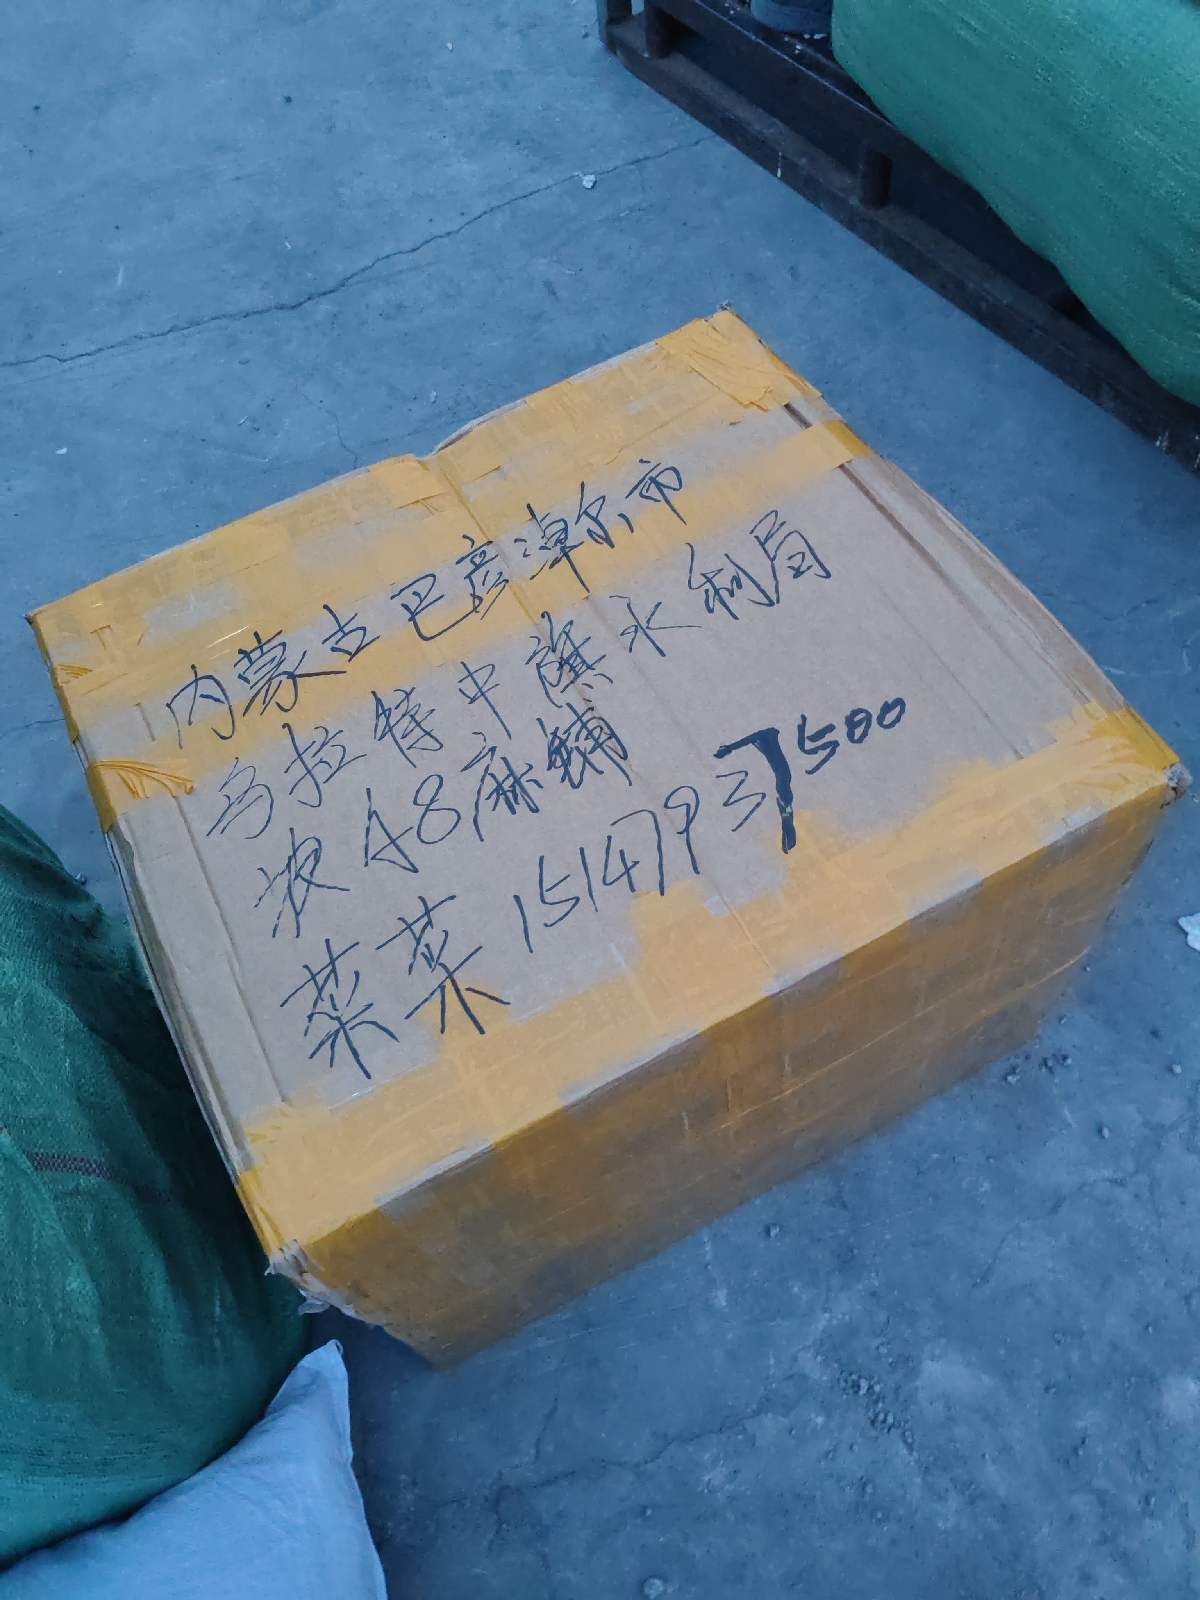 内蒙古巴彦淖尔市
乌拉特中旗水利局
A8麻辅
菜菜 15147937500